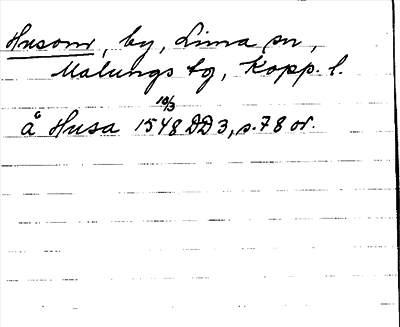 Husom, by, Lima sn,
Malungs tg, Kopp. l.
å Husa 1548 10/3 DD 3, s. 78 or.